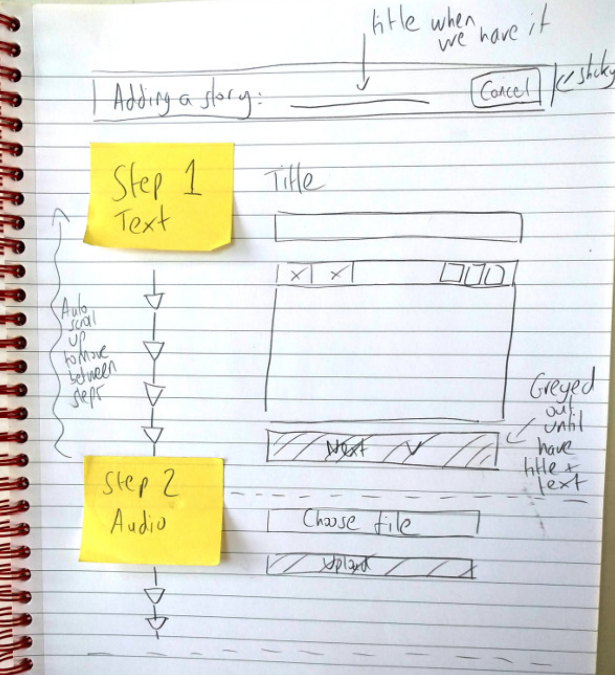 title when
we have it
Adding a story:
Cancel
sticky
Step 1
Text
Title
Auto
scroll
up
to move
between
steps
Next
Greyed
out
until
have
title +
text
Step 2
Audio
Choose file
Upload